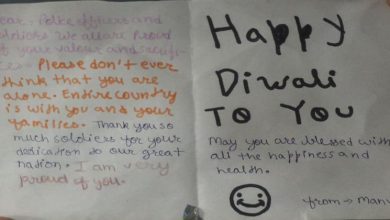 ear. Police officers and
soldiers We all are Proud
of your valour and sacrifi-
ces. Please don't ever
think that you are
alone. Entire country
is with you and your
families. Thank you so
much soldiers for your
dedication to our great
nation. I am very
proud of you.
Happy
Diwali
TO YOU
May you are blessed with
all the happiness and
health.
from → Many